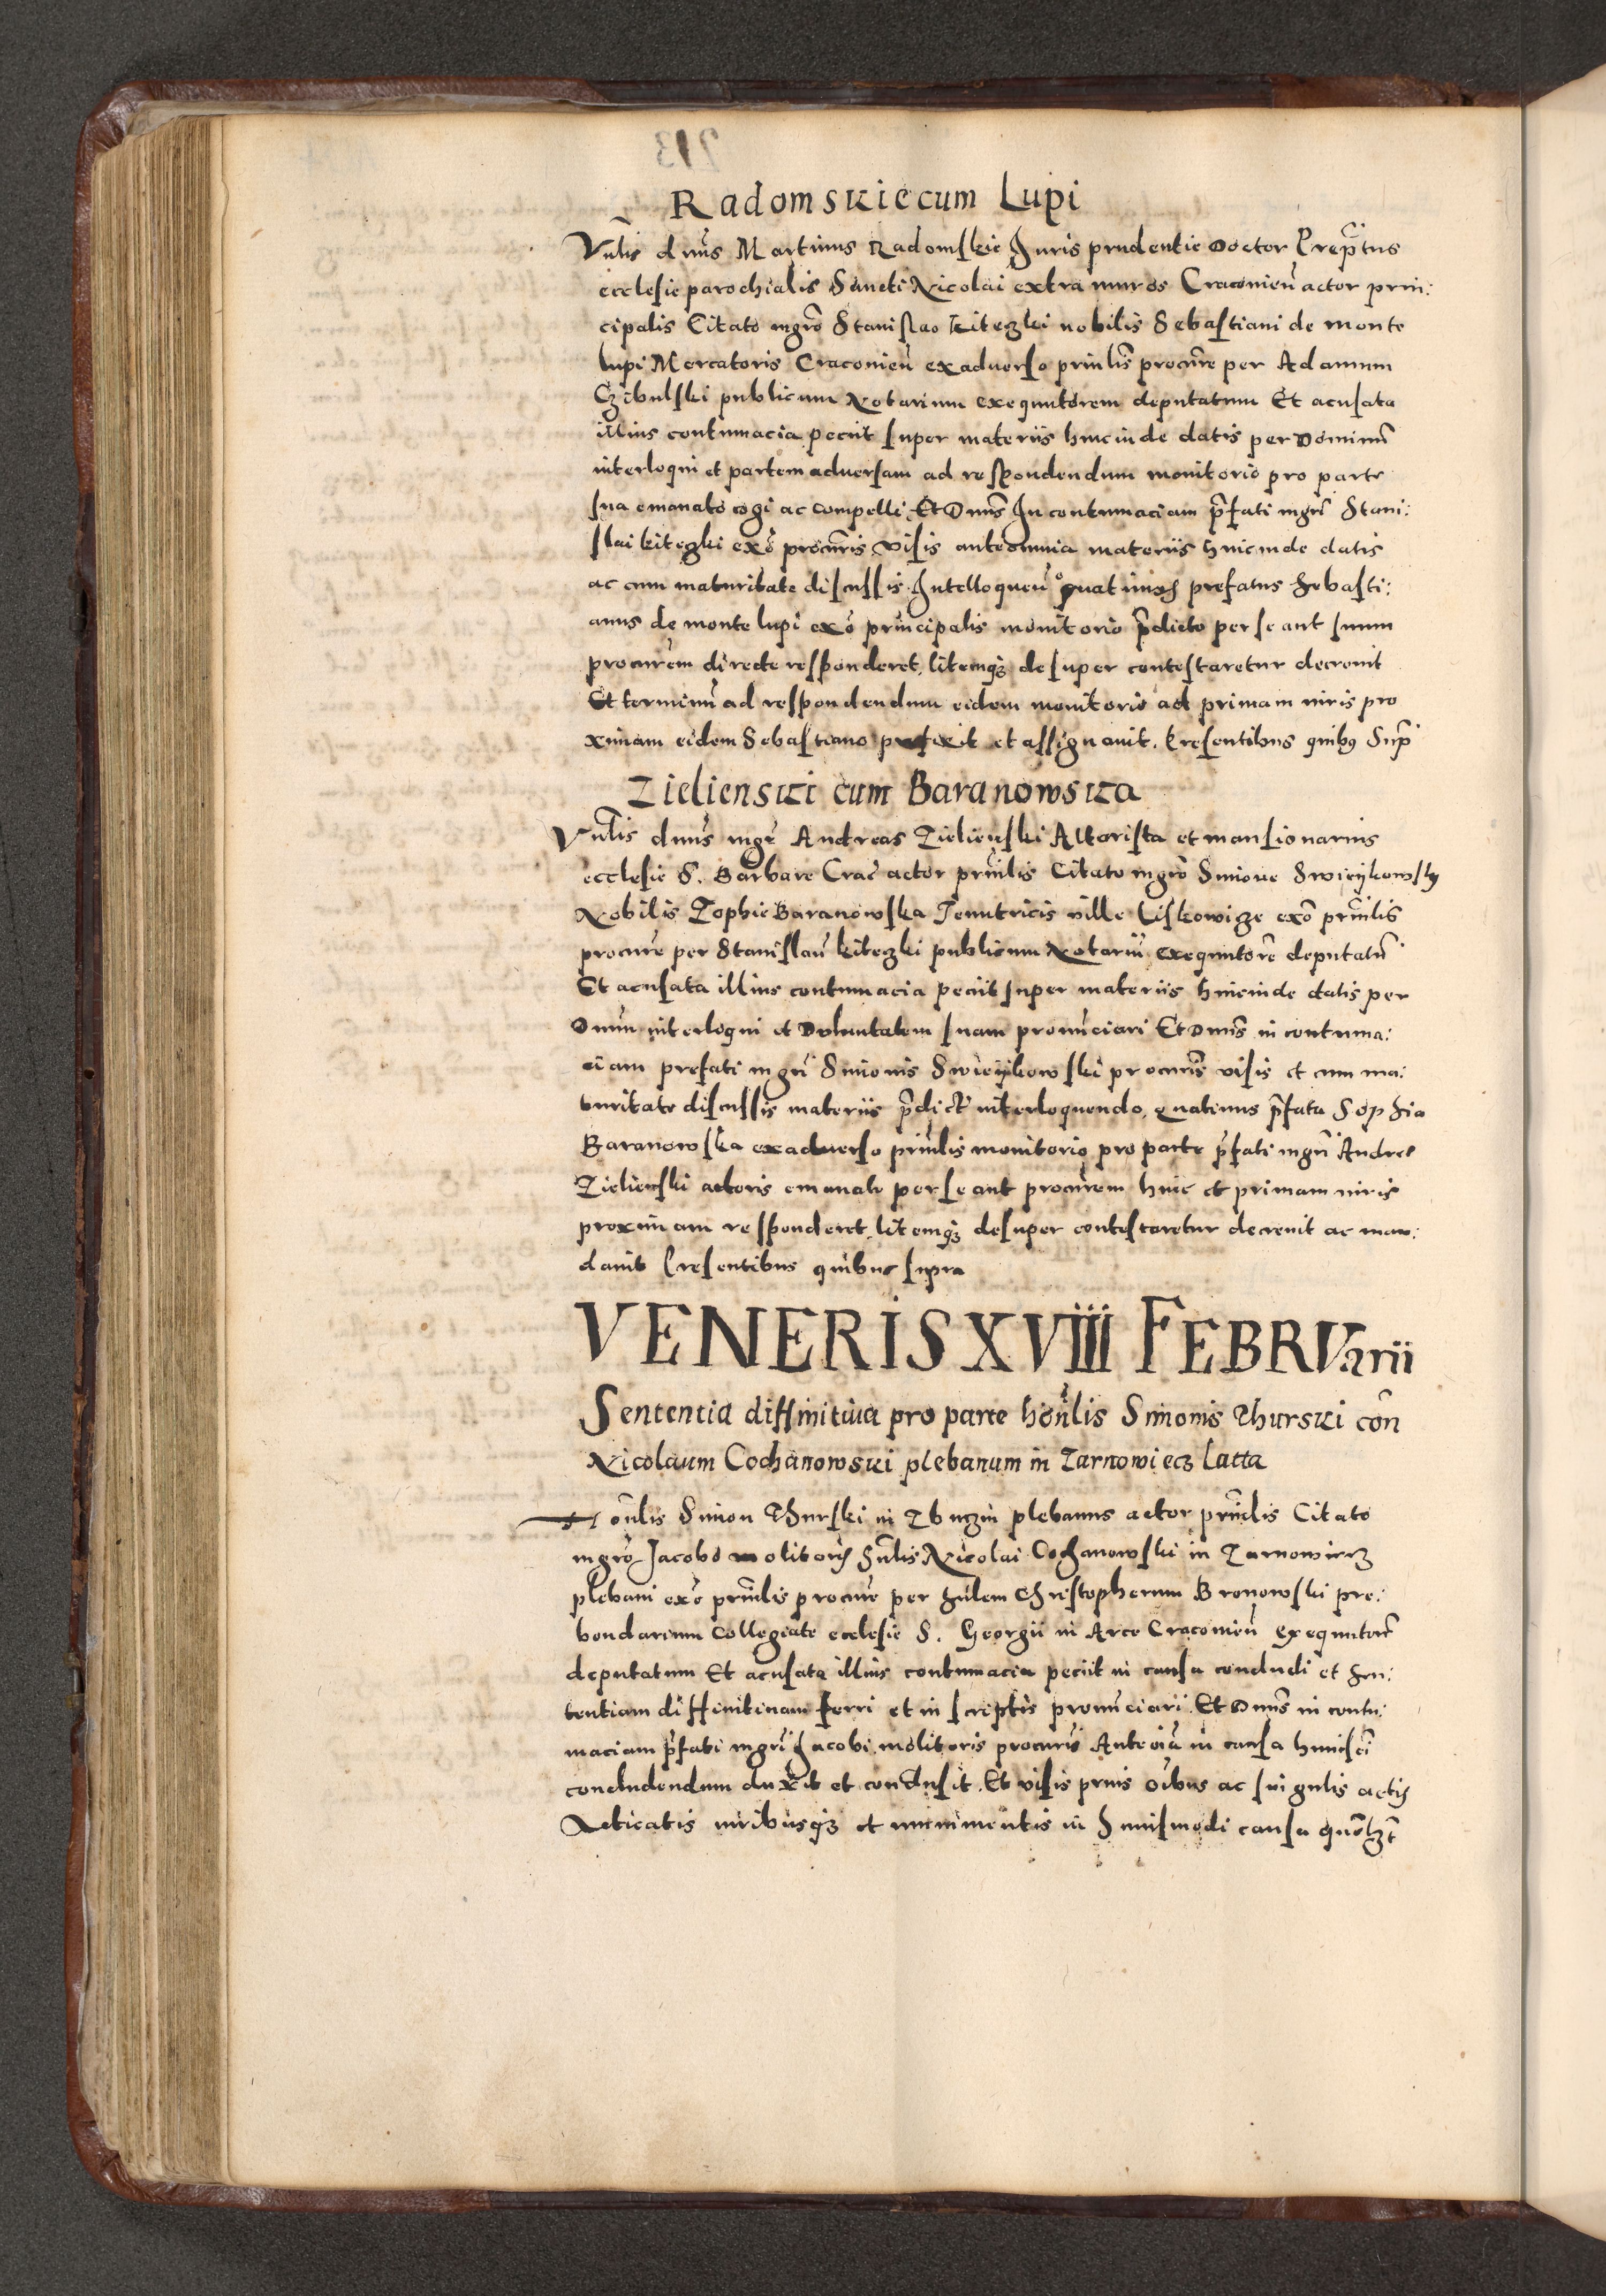 Radomskie cum Lupi
Vnlis dnus Martinus Radomskie Juris prudentie Doctor Preptus
ecclesie parochialis Sancti Nicolai extra muros Cracovien actor prin:
cipalis Citato mgro Stanislao kiteczki nobilis Sebastiani de monte
lupi Mercatoris Cracovien ex adverso prinlis procure per Adamum
Czibulski publicum Notarium exequutorem deputatum Et acusata
illius contumacia peciit super materiis hincinde datis per Dominum
interloqui et partem adversam ad respondendum monitorio pro parte
sua emanato cogi ac compelli Et Dnus In contumaciam pfati mgri Stani:
slai kiteczki exo procuris visis ante omnia materiis hincinde datis
ac cum maturitate discussis Intelloquen quatinus prefatus Sebasti:
anus de monte lupi exo principalis monitorio pdicto per se aut suum
procurem directe responderet litemqz desuper contestaretur decrevit
Et terminu ad respondendum eidem monitorio ad primam iuris pro
ximam eidem Sebastiano prefixit et assignavit. Presentibus quibus Sup
Zielienski cum Baranowska
Vnlis dnus mgr Andreas Zielienski Altarista et mansionarius
ecclesie S. Barbare Crac actor prinlis Citato mgro Simone Swieykowsky
Nobilis Zophie Baranowska Tenutricis ville Liskowicze exo prinlis
procure per Stanislau kiteczki publicum Notariu exequutore deputatu
Et acusata illius contumacia peciit super materiis hincinde datis per
Dnum interloqui et Voluntatem suam pronunciari Et Dnus in contuma:
ciam prefati mgri Simonis Swieykowski procuris visis et cum ma:
turitate discussis materiis pdict interloquendo, quatinus pfata Sophia
Baranowska ex adverso prinlis monitorio pro parte pfati mgri Andree
Zielienski actoris emanato per se aut procurem hinc et primam iuris
proximam responderet litemqz desuper contestaretur decrevit ac man:
davit Presentibus quibus supra
VENERIS XVIIII FEBRVarii
Sententia diffinitiva pro parte honlis Simonis Thurski con
Nicolaum Cochanowski plebanum in Tarnowiecz Latta
Honlis Simon Thurski in Tbuczin plebanus actor prinlis Citato
mgro Jacobo molitoris hnlis Nicolai Cochanowski in Tarnowiecz
plebani exo prinlis procure per hnlem Christopherum Bronowski pre:
bendarium Collegiate ecclesie S. Georgii in Arce Cracovien exequutore
deputatum Et acusata illius contumacia peciit in causa concludi et sen:
tentiam diffinitivam ferri et in scriptis pronunciari. Et Dnus in contu:
maciam pfati mgri Jacobi molitoris procuris Ante oia in causa hmoi
concludendum duxit et conclusit. Et visis prius oibus ac singulis actis
Acticatis iuribusqz et munimentis in huiusmodi causa